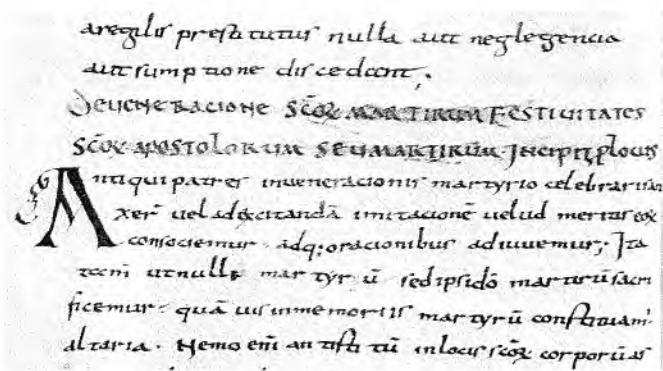 aregilis prestitutus nulla aut neglegencia
aut sumptione discedant;
De ueneracione scōꝝ martirum festiuitates
scōꝝ apostolorum seu martirum Incipit plocus
Antiqui patres inueneracionis martyrio celebrari san
xer̄ uel adexcitandā imitacionē uelud meritis eoꝝ
consociemur adq; oracionibus adiuuemur; Ita
tam̄ ut nulle martyrū sed ipsi dō martirū sacri
ficemur. quā uis inmemoriis martyrū constituam
altaria. Nemo enī antisti tū inlocis scōꝝ corporū as